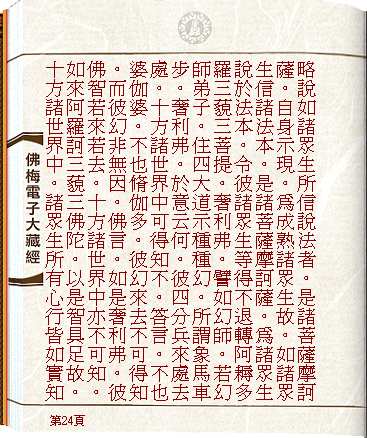 略說如諸眾生所信說法者。是諸菩薩摩訶
薩。自身示現。為成熟諸眾生故。如諸眾
生信諸法本。是諸菩薩摩訶薩。為諸眾生
說於法本。令彼諸眾生等得不退轉阿耨多
羅三藐三菩提。奢利弗。譬如幻師。若幻
師弟子。住四大道示種種幻。所謂象馬車
步。奢利弗。於意云何。彼四分兵來處去
處。十方諸世界中可得知不。答言。不也
婆伽婆。不也脩伽多。彼幻來去不可得知
。而彼幻非無因。佛言。如是奢利弗。彼
佛智若來若去。十方諸世界中亦不可知。
如來阿羅訶三藐三佛陀。以是智具足故。
十方諸世界中。諸眾生所有心行皆如實知
佛梅電子大藏經
第24頁